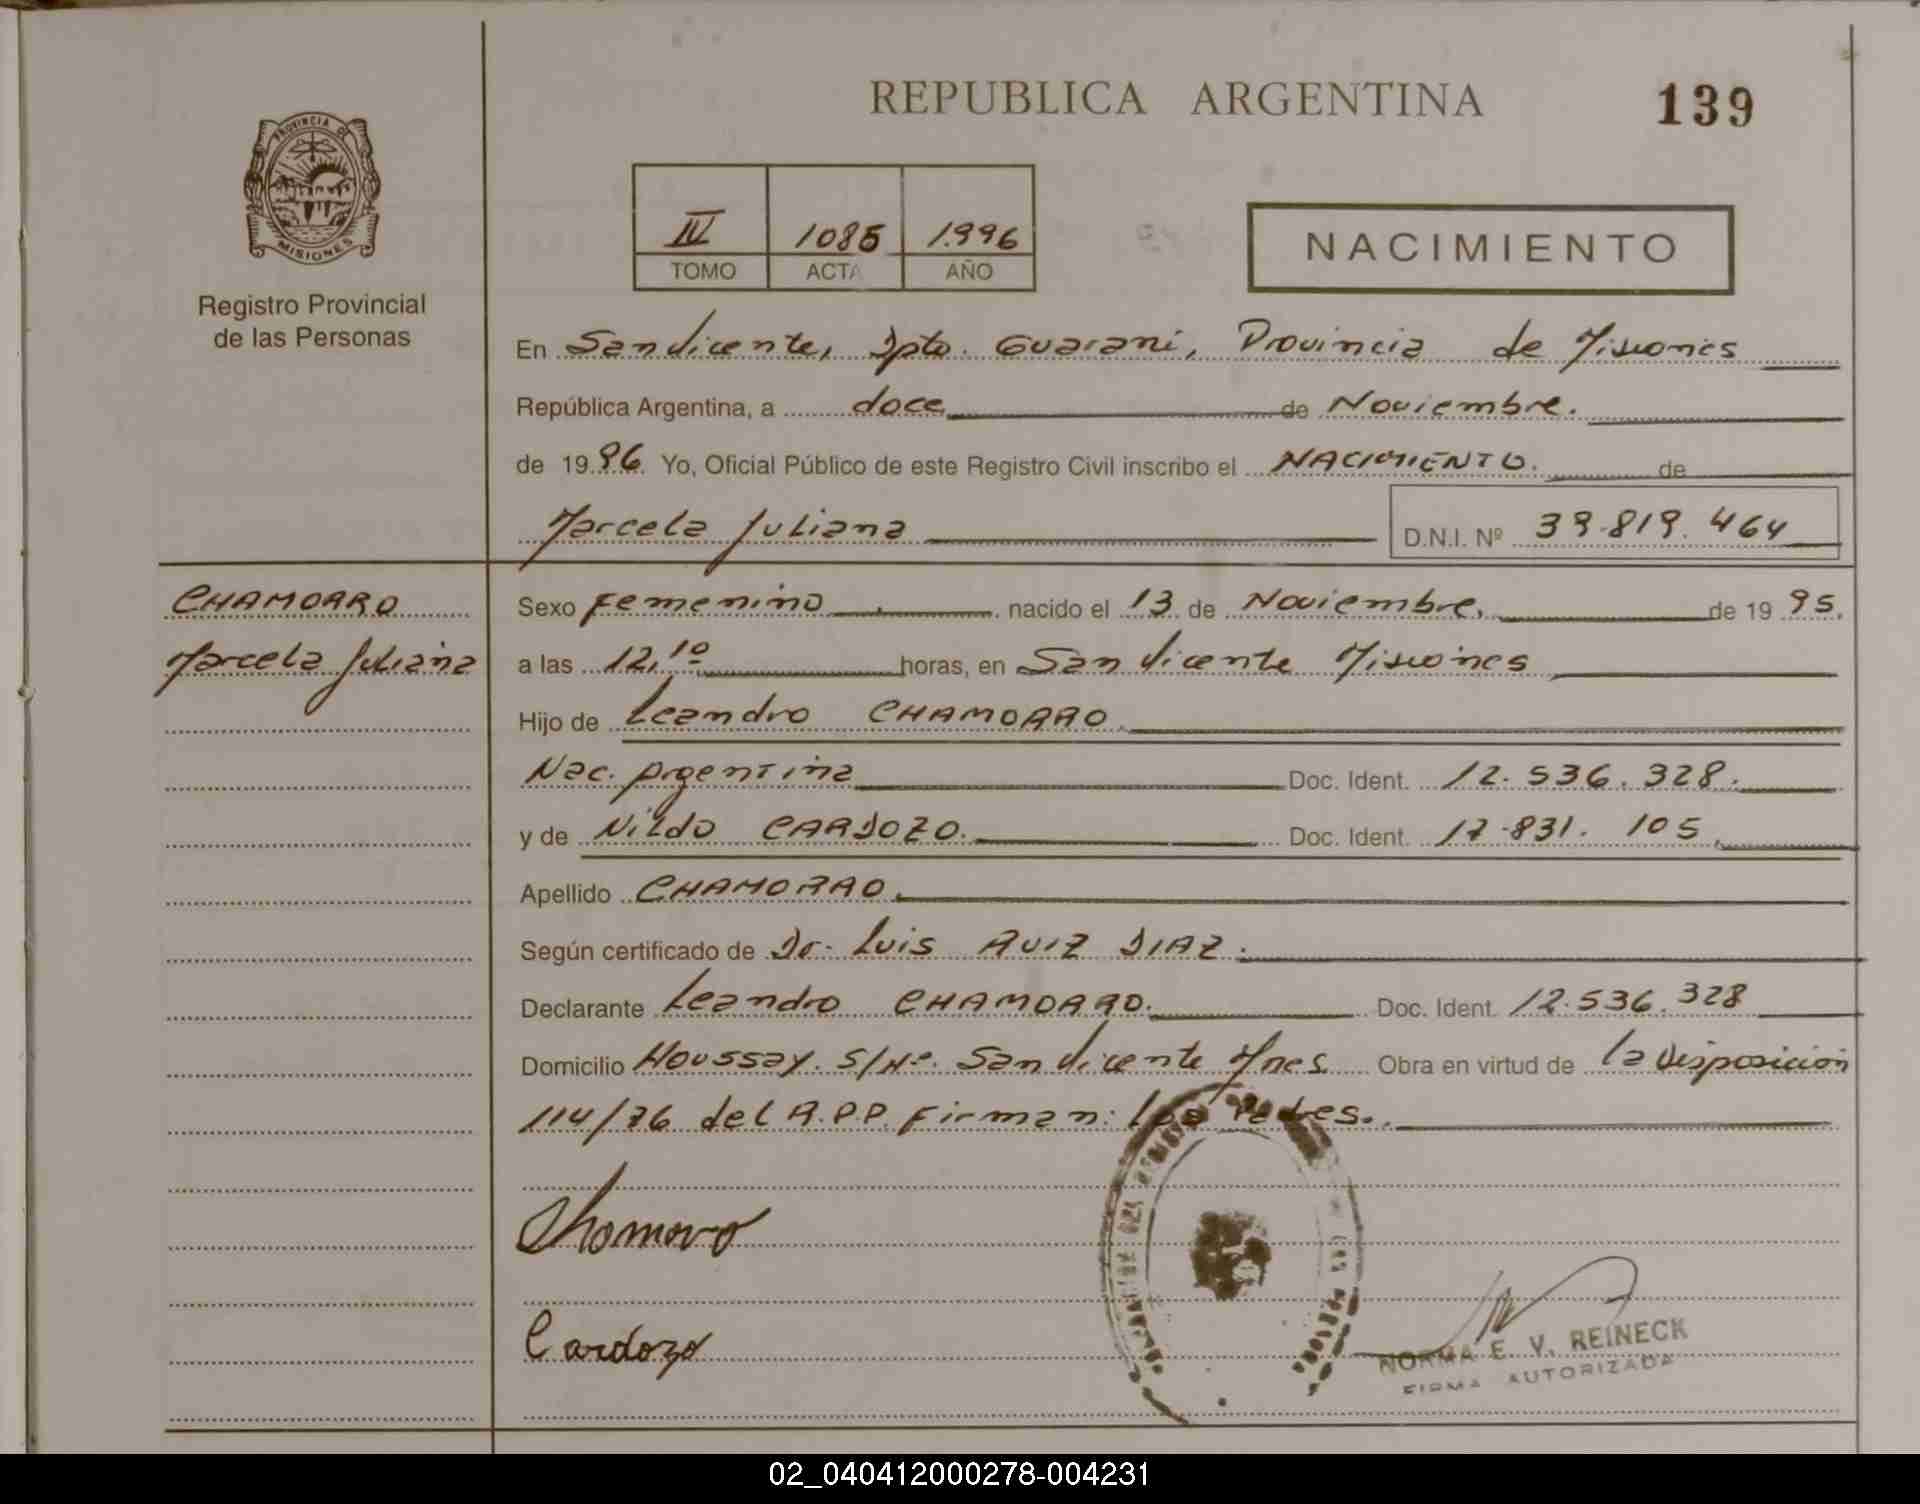 REPUBLICA ARGENTINA
139
PROVINCIA DE
MISIONES
Registro Provincial
de las Personas
IV 1085 1996
TOMO ACTA AÑO
NACIMIENTO
En San Vicente, Dpto. Guarani, Provincia de Misiones
República Argentina, a doce de Noviembre.
de 1996 Yo, Oficial Público de este Registro Civil inscribo el NACIMIENTO. de
Marcela Juliana
D.N.I. Nº 39.819.464
CHAMORRO
Marcela Juliana
Sexo Femenino nacido el 13 de Noviembre, de 1995.
a las 12,10 horas, en San Vicente Misiones
Hijo de Leandro CHAMORRO.
Nac. Argentina Doc. Ident. 12.536.328.
y de Nildo CARDOZO. Doc. Ident. 17.831.105.
Apellido CHAMORRO.
Según certificado de Dr. Luis RUIZ DIAZ.
Declarante Leandro CHAMORRO. Doc. Ident. 12.536.328
Domicilio Houssay. S/Nº. San Vicente Mnes. Obra en virtud de la Disposición
114/76 del R.P.P. Firman: Los Padres.
Chamorro
Cardozo
NORMA E. V. REINECK
FIRMA AUTORIZADA
02_040412000278-004231